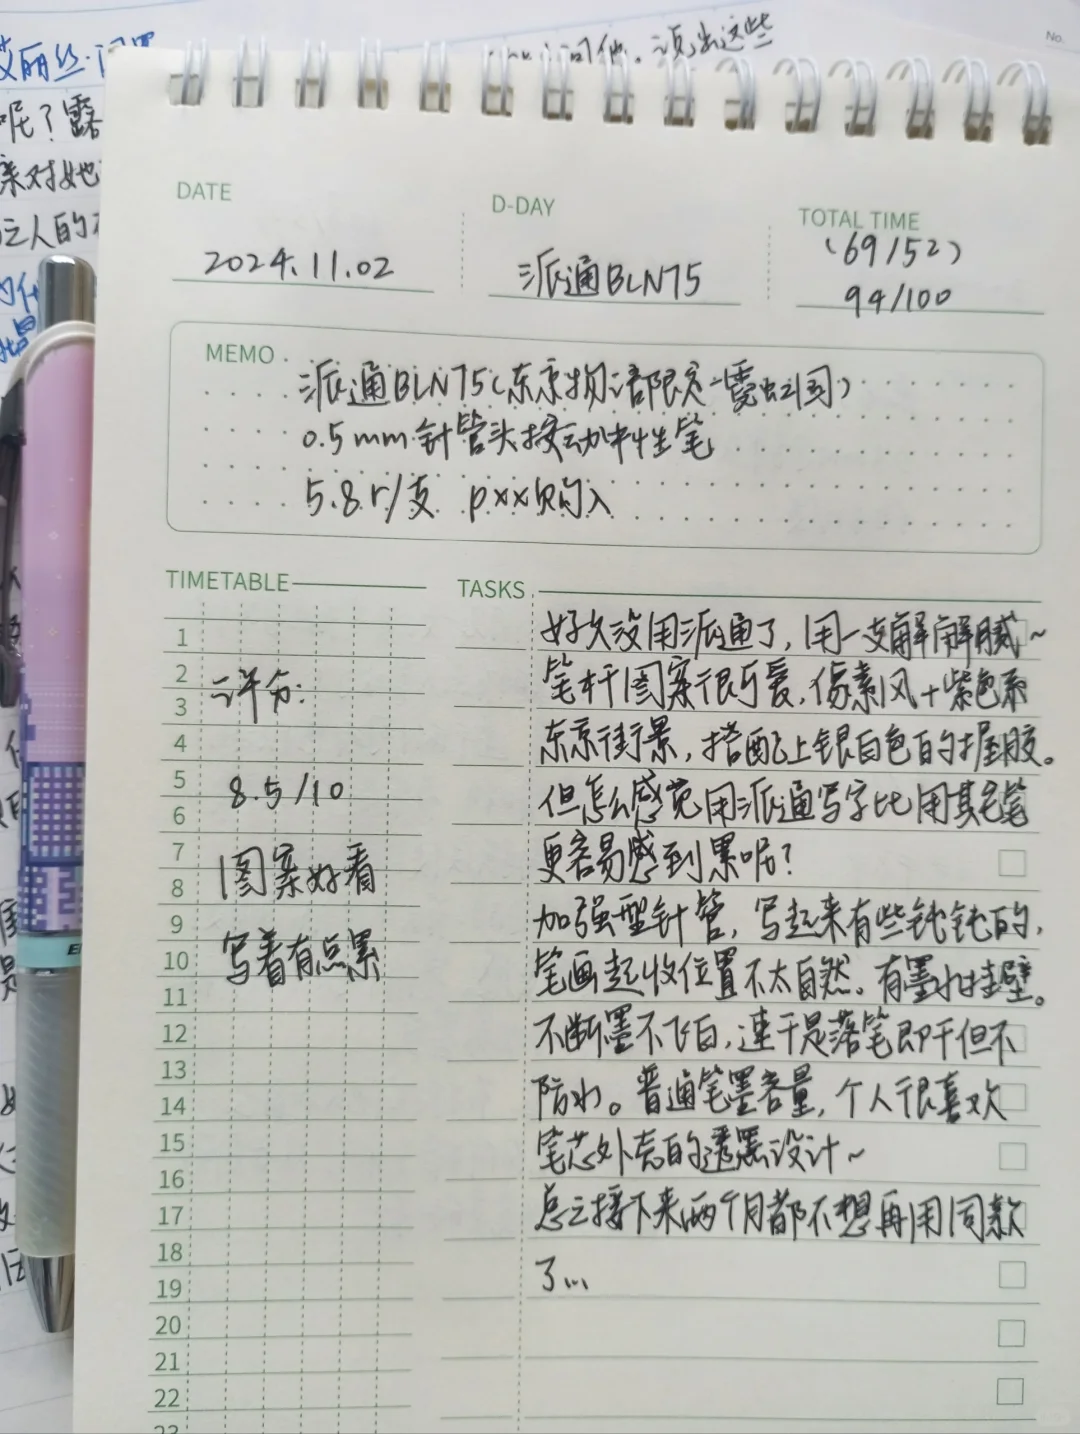 No.
DATE
D-DAY
TOTAL TIME
2024.11.02
派通BLN75
(69/52)
94/100
MEMO
派通BLN75(东京物语部限定-霓虹国)
0.5mm针管头按动中性笔
5.8r/支 pxx购入
TIMETABLE
TASKS
1
2
3
4
5
6
7
8
9
10
11
12
13
14
15
16
17
18
19
20
21
22
23
评分:
8.5/10
图案好看
写着有点累
好久没用派通了,用一支解解腻~
笔杆图案很可爱,像素风+紫色系
东京街景,搭配上银白色的握胶。
但怎么感觉用派通写字比用其它笔
更容易感到累呢?
加强型针管,写起来有些钝钝的,
笔画起收位置不太自然。有墨水挂壁。
不断墨不飞白,速干是落笔即干但不
防水。普通笔墨容量,个人很喜欢
笔芯外壳的透黑设计~
总之接下来两个月都不想再用同款
了...
艾丽丝·门罗
呢?露
亲对她
之人的
问他。
这些